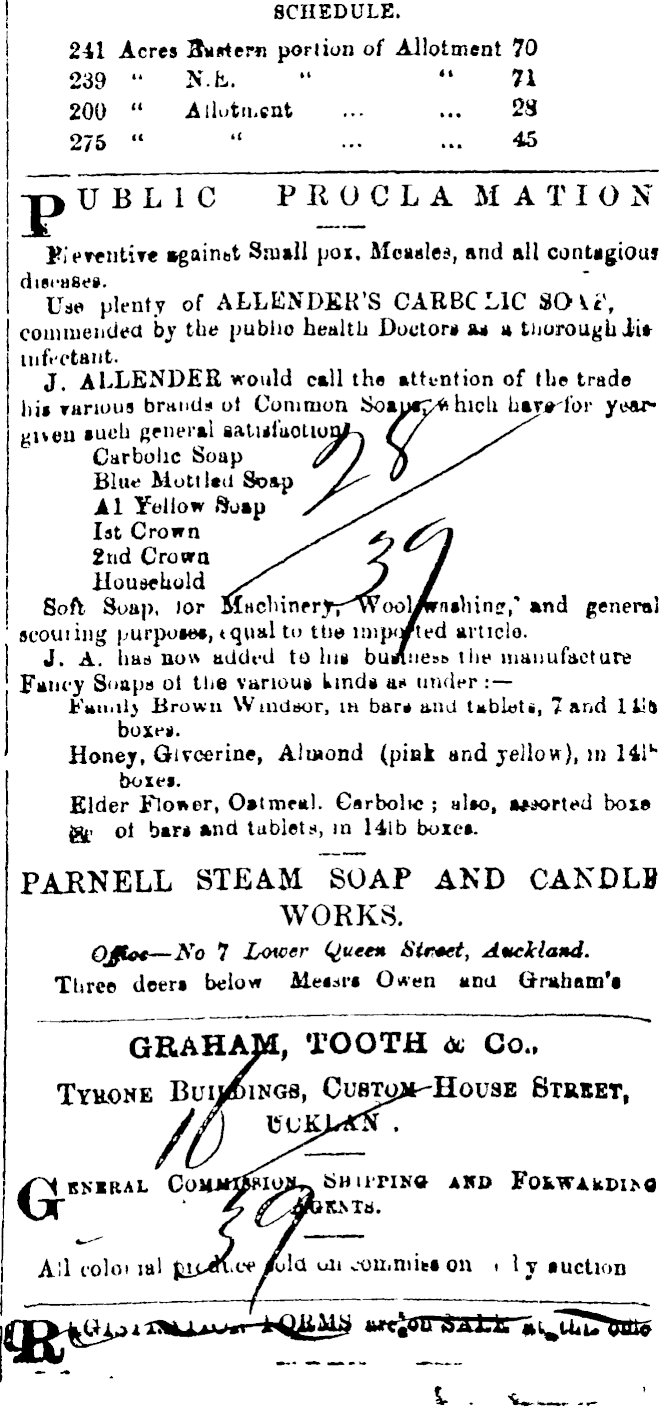 SCHEDULE.
241 Acres Eastern portion of Allotment 70
239 " N.E. " " 71
200 " Allotment ... ... 28
275 " " ... ... 45
PUBLIC PROCLAMATION
Preventive against Small pox, Measles, and all contagious
diseases.
Use plenty of ALLENDER'S CARBOLIC SOAP,
commended by the public health Doctors as a thorough dis
infectant.
J. ALLENDER would call the attention of the trade
his various brands of Common Soaps, which have for year
given such general satisfaction
Carbolic Soap
Blue Mottled Soap
A1 Yellow Soap
1st Crown
2nd Crown
Household
28
39
Soft Soap, for Machinery, Wool washing, and general
scouring purposes, equal to the imported article.
J. A. has now added to his business the manufacture
Fancy Soaps of the various kinds as under :—
Family Brown Windsor, in bars and tablets, 7 and 14lb
boxes.
Honey, Glycerine, Almond (pink and yellow), in 14lb
boxes.
Elder Flower, Oatmeal. Carbolic ; also, assorted boxe
of bars and tablets, in 14lb boxes.
PARNELL STEAM SOAP AND CANDLE
WORKS.
Office—No 7 Lower Queen Street, Auckland.
Three doors below Messrs Owen and Graham's
GRAHAM, TOOTH & Co.,
TYRONE BUILDINGS, CUSTOM HOUSE STREET,
UCKLAN .
16
39
GENERAL COMMISSION, SHIPPING AND FORWARDING
AGENTS.
All colonial produce sold on commission by auction
REGISTRATION FORMS are on SALE at this office